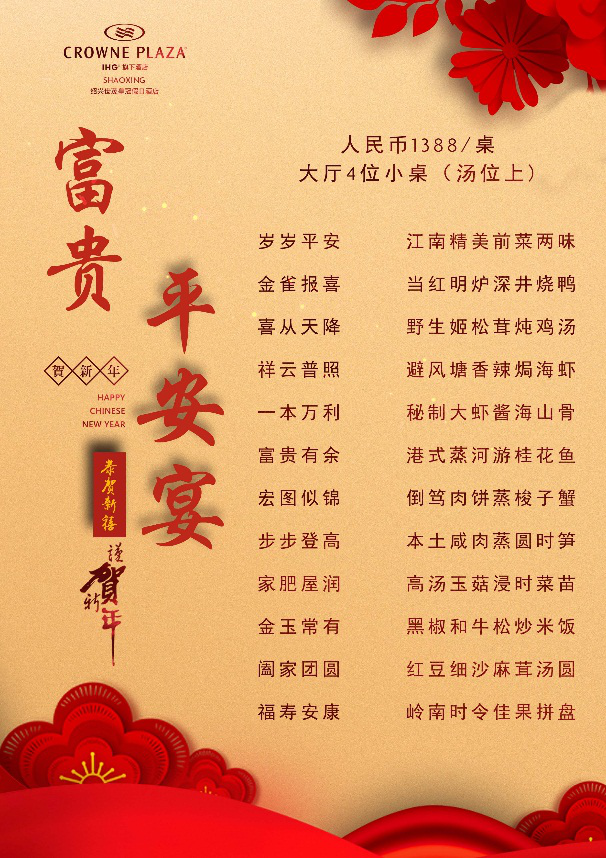 CROWNE PLAZA
IHG® 旗下酒店
SHAOXING
绍兴世茂皇冠假日酒店
富贵
平安宴
人民币1388/桌
大厅4位小桌（汤位上）
岁岁平安 江南精美前菜两味
金雀报喜 当红明炉深井烧鸭
喜从天降 野生姬松茸炖鸡汤
祥云普照 避风塘香辣焗海虾
一本万利 秘制大虾酱海山骨
富贵有余 港式蒸河游桂花鱼
宏图似锦 倒笃肉饼蒸梭子蟹
步步登高 本土咸肉蒸圆时笋
家肥屋润 高汤玉菇浸时菜苗
金玉常有 黑椒和牛松炒米饭
阖家团圆 红豆细沙麻茸汤圆
福寿安康 岭南时令佳果拼盘
賀新年
HAPPY
CHINESE
NEW YEAR
恭贺新禧
謹賀新年